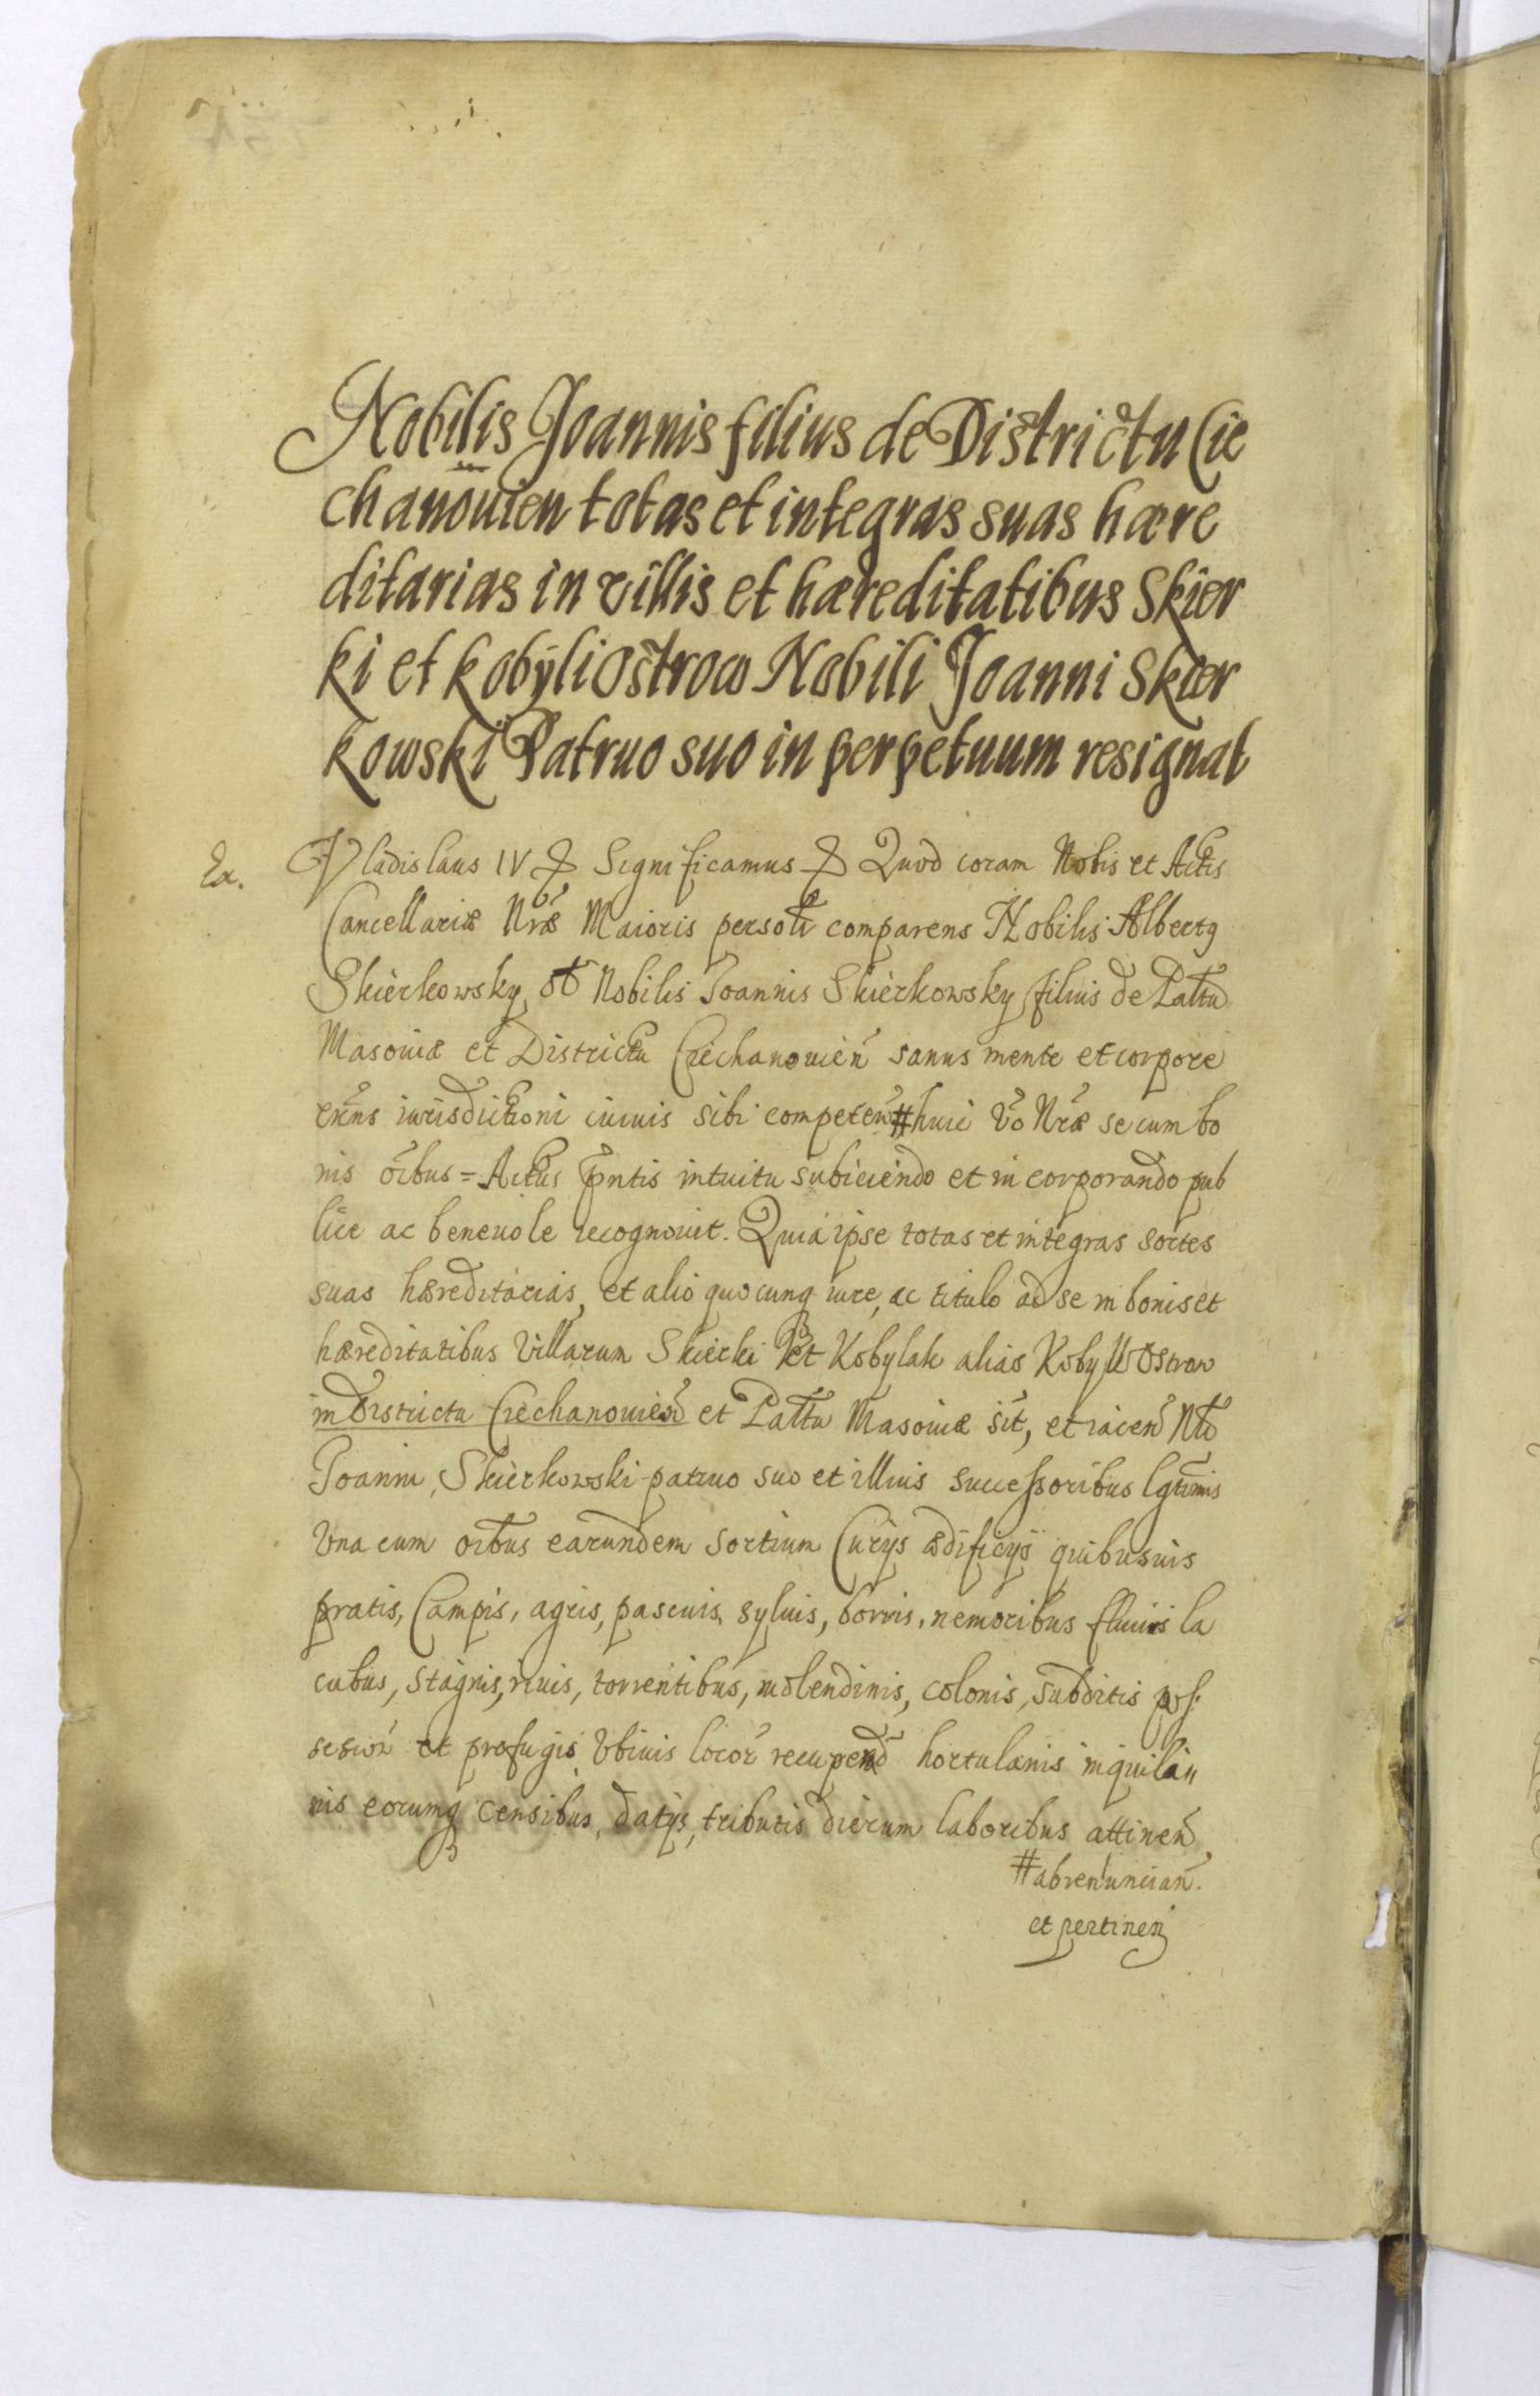 Nobilis Joannis filius de Districtu Cie
chanouien totas et integras suas hære
ditarias in villis et hæreditatibus Skier
ki et Kobyli Ostrow Nobili Joanni Skier
kowski Patruo suo in perpetuum resignat
Ex. Vladislaus IV & Significamus & Quod coram Nobis et Actis
Cancellariæ Nræ Maioris personlr comparens Nobilis Albertꝯ
Skierkowsky, olim Nobilis Joannis Skierkowsky filius de Pallatu
Masoviæ et Districtu Ciechanouien̄ sanus mente et corpore
exn̄ns iurisdictioni cuiuis sibi competen̄ # huic vō Nræ se cum bo
nis oībus = Actus p̄ntis intuitu subiiciendo et incorporando pub
lice ac beneuole recognouit. Quia ipse totas et integras sortes
suas hæreditarias, et alio quocunqꝫ iure, ac titulo ad se in bonis et
hæreditatibus Villarum Skierki et Kobylak alias Kobyli Ostrow
in Districtu Ciechanouien̄ et Pallatu Masoviæ sit, et iacen̄ Nli
Joanni, Skierkowski patruo suo et illius successoribus lgtimis
Vna cum oibus earundem sortium Curijs ædificijs quibusuis
pratis, Campis, agris, pascuis, syluis, borris, nemoribus fluuis la
cubus, stagnis, riuis, torrentibus, molendinis, colonis, subditis pos
session̄ et profugis vbiuis locor̄ recupend̄ hortulanis inquilin
nis eorumqꝫ censibus, datijs, tributis dierum laboribus attinen̄
# abrenuncian̄.
et pertinen̄